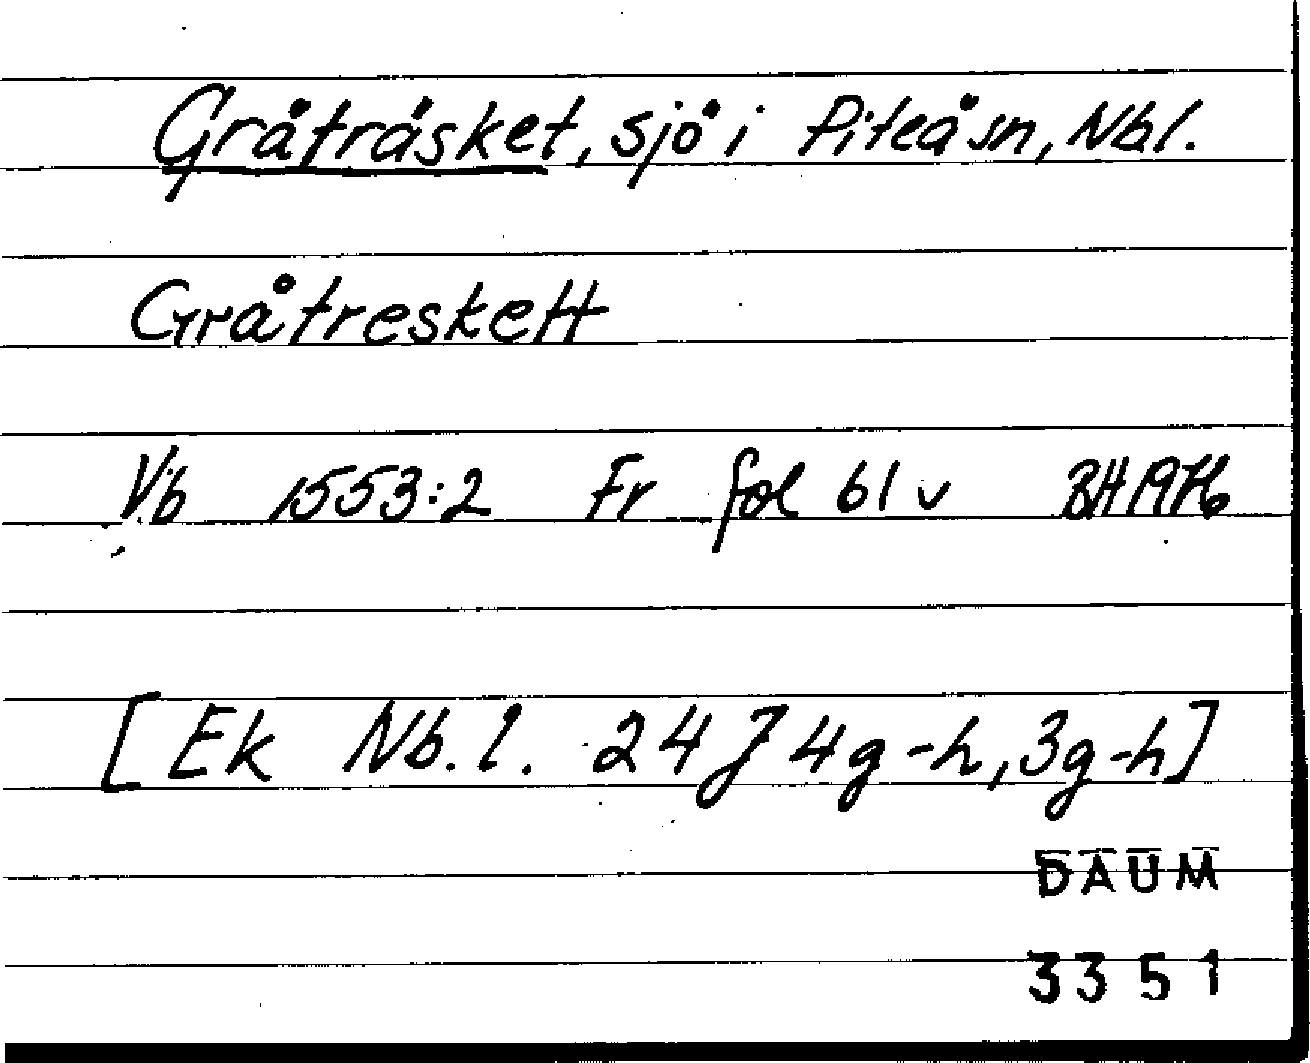 Gråträsket, sjö i Piteå sn, Nbl.
Gråtreskett
Vb 1553:2 Fr fol 61 v BH 1976
[Ek Nb.l. 24 J 4g-h, 3g-h]
DAUM
3351